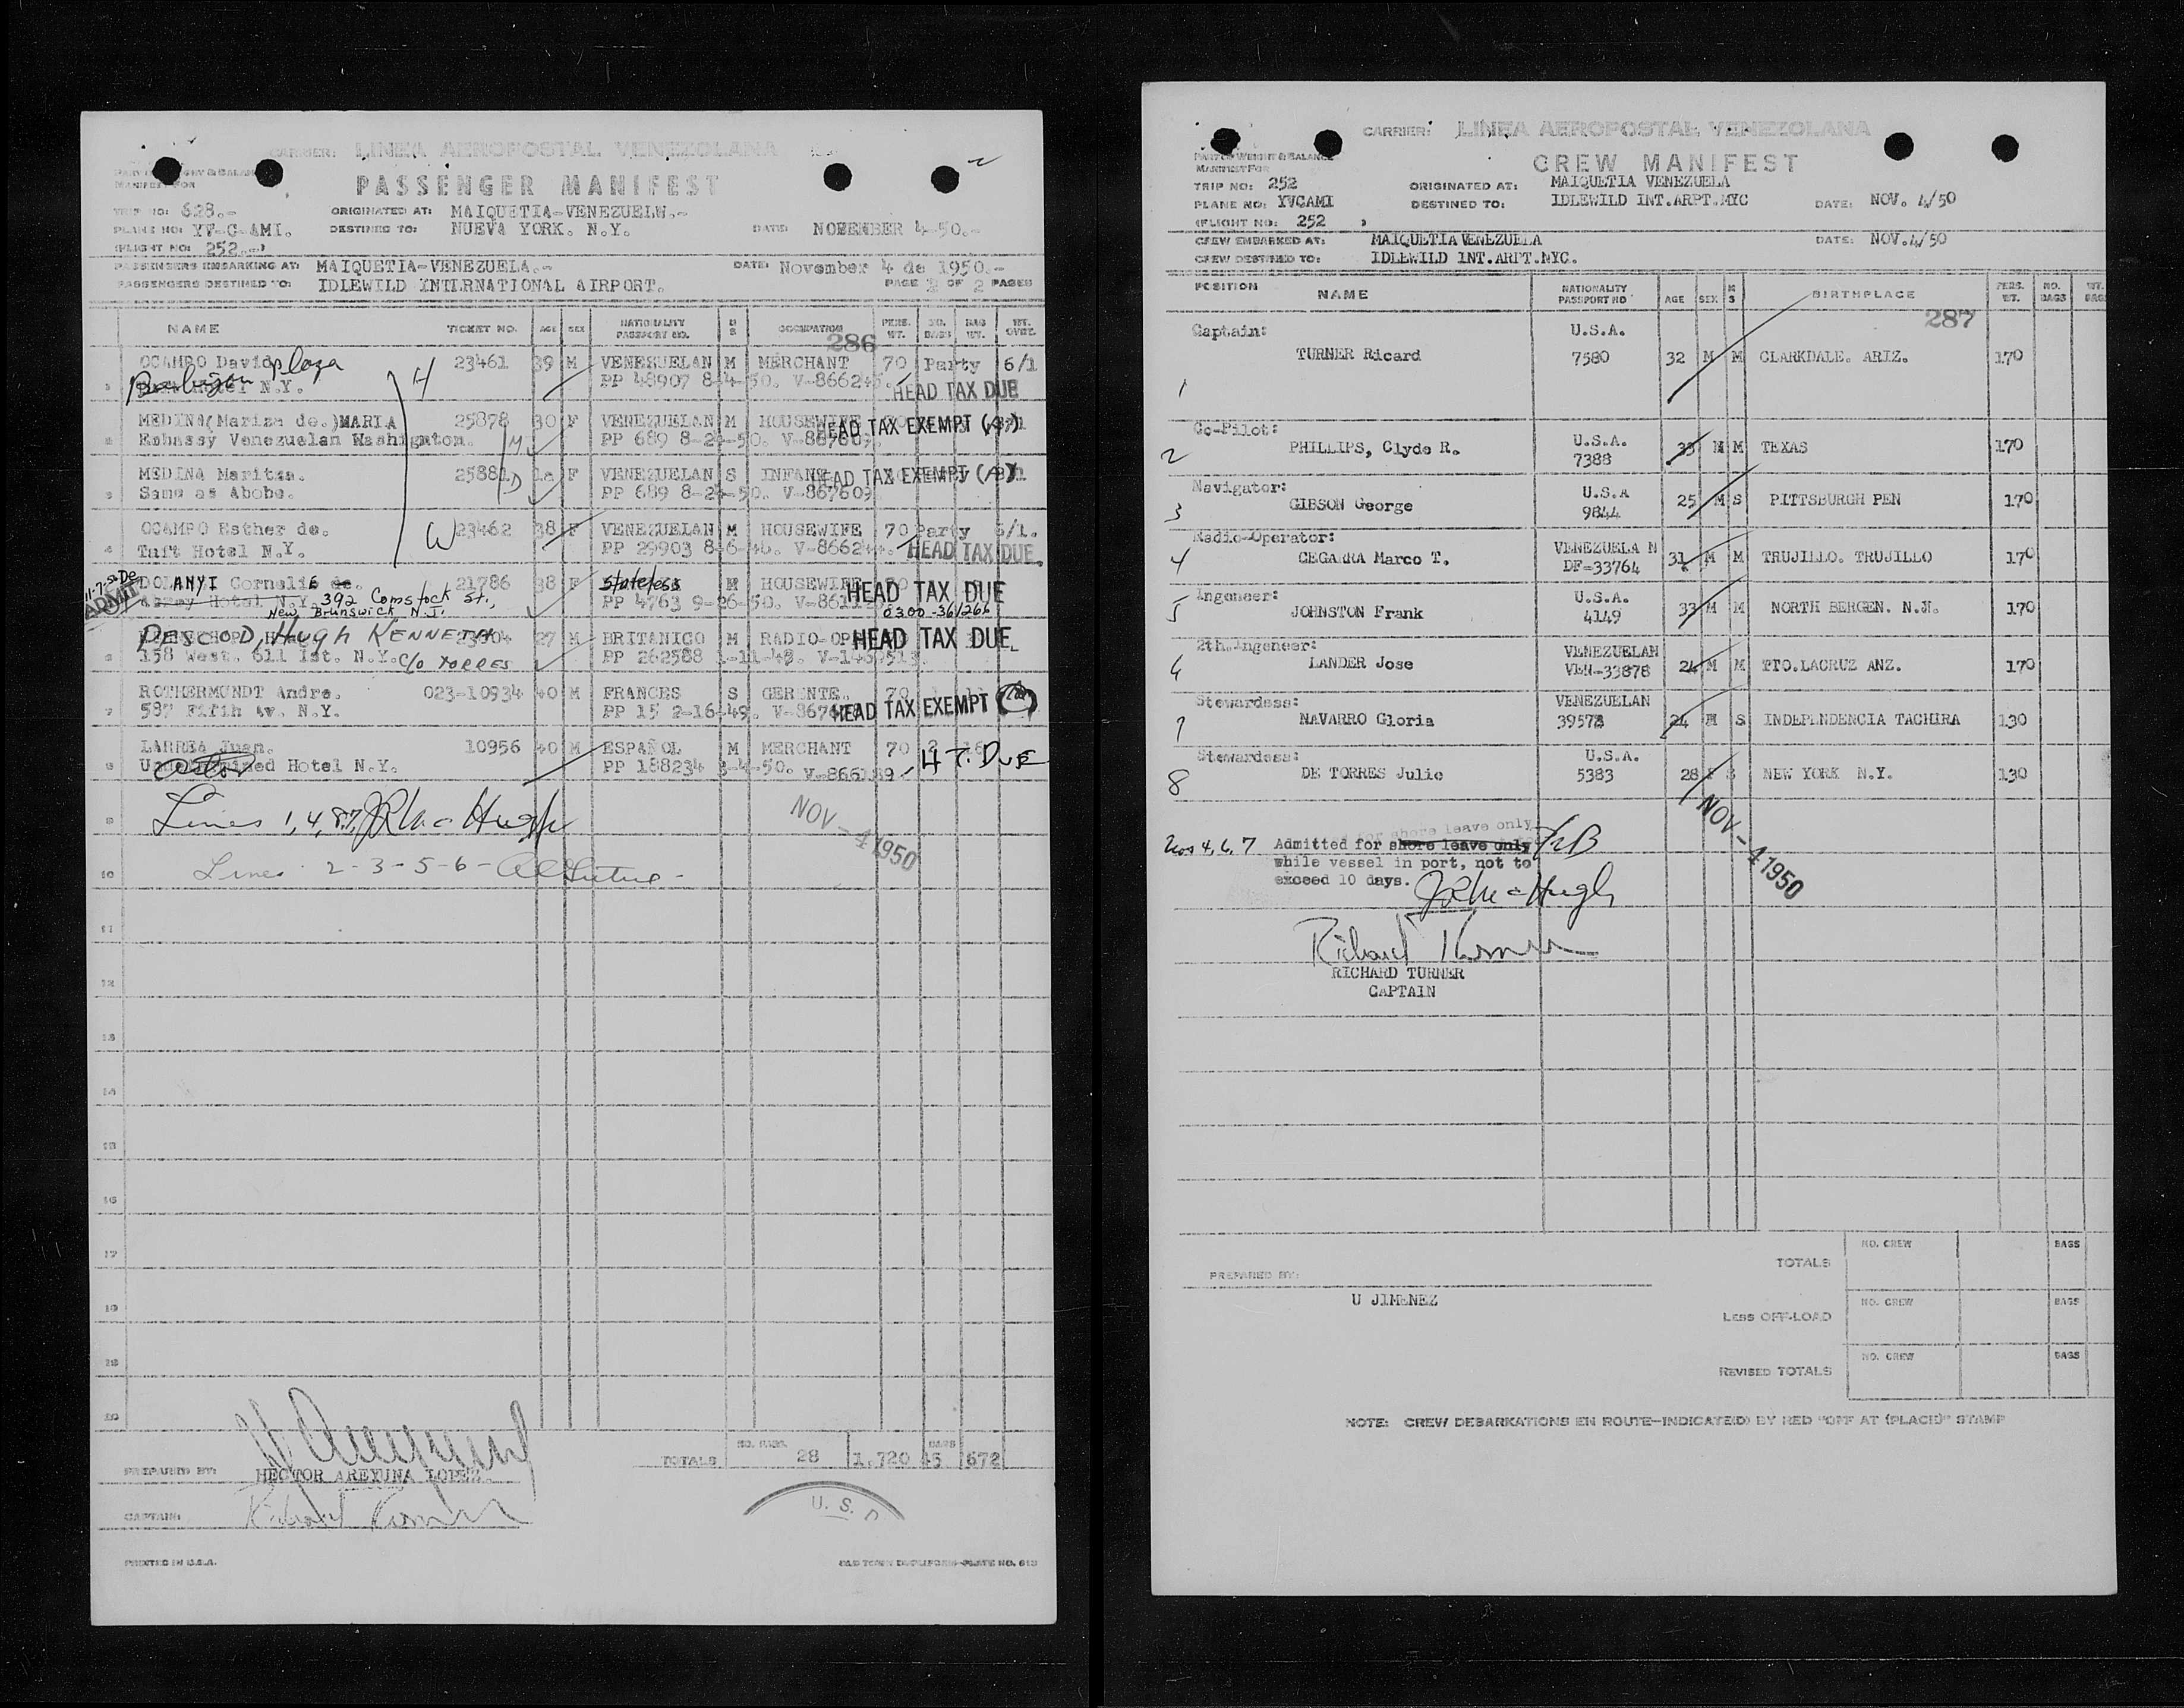 CARRIER: LINEA AEROPOSTAL VENEZOLANA
MANIFEST FOR
PASSENGER MANIFEST
TRIP NO: 628.-
ORIGINATED AT: MAIQUETIA-VENEZUELW.-
PLANE NO: YV-C-AMI.
DESTINED TO: NUEVA YORK. N.Y.
DATE: NOVENBER 4-50.-
(FLIGHT NO: 252.-)
PASSENGERS EMBARKING AT: MAIQUETIA-VENEZUELA.-
DATE: November 4 de 1950.-
PASSENGERS DESTINED TO: IDLEWILD INTERNATIONAL AIRPORT.
PAGE 2 OF 2 PAGES
NAME TICKET NO. AGE SEX NATIONALITY PASSPORT NO. M S OCCUPATION PERS. WT. NO. BAGS BAG WT. WT. OVGT.
286
OCAMPO David plaza H 23461 39 M VENEZUELAN M MERCHANT 70 Party 6/1
N.Y. PP 48907 8-4-50. V-866245. HEAD TAX DUE
MEDINA(Mariza de.)MARIA 25878 30 F VENEZUELAN M HOUSEWIFE
Embassy Venezuelan Washignaton. M PP 689 8-24-50. HEAD TAX EXEMPT
MEDINA Maritza. 25881 1a F VENEZUELAN S INFANT
Same as Abobe. D PP 689 8-24-50. V-867609 HEAD TAX EXEMPT
OCAMPO Esther de. W 23462 38 F VENEZUELAN M HOUSEWIFE 70 Party 6/1.
Taft Hotel N.Y. PP 29903 HEAD TAX DUE.
ADMIT DOLANYI Cornelie de. 21786 38 F stateless M HOUSEWIFE HEAD TAX DUE
Hotel N.Y. 392 Comstock St., PP 4763 9-26-50. 0300-361266
New Brunswick N.J.
Hugh KENNETH 27 M BRITANICO M HEAD TAX DUE.
158 West. 611 Ist. N.Y. c/o TORRES PP 262588
ROTHERMUNDT Andre. 023-10934 40 M FRANCES S GERENTE. 70
587 Fifth av. N.Y. PP 15 2-16-49. HEAD TAX EXEMPT
LARREA Juan. 10956 40 M ESPAÑOL M MERCHANT 70 2
Hotel N.Y. PP 188234 3-4-50. V-866189 H T. DUE
Lines 1, 4, 8, 7, JR McHugh
NOV-4 1950
Lines 2-3-5-6-
9
10
11
12
13
14
15
16
17
18
19
20
TOTALS NO. PASS. 28 1,720 BAGS 45 672
PREPARED BY: HECTOR AREYUNA LOPEZ.
CAPTAIN:
U. S.
PRINTED IN U.S.A.
PLATE NO. 613
CARRIER: LINEA AEROPOSTAL VENEZOLANA
PART OF WEIGHT & BALANCE
MANIFEST FOR
CREW MANIFEST
TRIP NO: 252
ORIGINATED AT: MAIQUETIA VENEZUELA
PLANE NO: YVCAMI
DESTINED TO: IDLEWILD INT.ARPT.NYC
DATE: NOV. 4/50
(FLIGHT NO: 252 )
CREW EMBARKED AT: MAIQUETIA VENEZUELA
DATE: NOV.4/50
CREW DESTINED TO: IDLEWILD INT.ARPT.NYC.
POSITION NAME NATIONALITY PASSPORT NO AGE SEX M S BIRTHPLACE PERS. WT. NO. BAGS WT. BAG
287
Captain: U.S.A.
1 TURNER Ricard 7580 32 M M CLARKDALE. ARIZ. 170
Co-Pilot: U.S.A.
2 PHILLIPS, Clyde R. 7388 33 M M TEXAS 170
Navigator: U.S.A
3 GIBSON George 9844 25 M S PITTSBURGH PEN 170
Radio-Operator: VENEZUELA N
4 CEGARRA Marco T. DF-33764 31 M M TRUJILLO. TRUJILLO 170
Ingeneer: U.S.A.
5 JOHNSTON Frank 4149 33 M M NORTH BERGEN. N.J. 170
2th.Ingeneer: VENEZUELAN
6 LANDER Jose VEN-33878 24 M M PTO.LACRUZ ANZ. 170
Stewardess: VENEZUELAN
7 NAVARRO Gloria 39578 24 M S INDEPENDENCIA TACHIRA 130
Stewardess: U.S.A.
8 DE TORRES Julie 5383 28 F S NEW YORK N.Y. 130
NOV-4 1950
Nos 4, 6, 7 Admitted for shore leave only
while vessel in port, not to
exceed 10 days.
JR McHugh
Richard Turner
RICHARD TURNER
CAPTAIN
TOTALS NO. CREW BAGS
PREPARED BY:
U JIMENEZ
LESS OFF-LOAD NO. CREW BAGS
REVISED TOTALS NO. CREW BAGS
NOTE: CREW DEBARKATIONS EN ROUTE-INDICATE(D) BY RED "OFF AT (PLACE)" STAMP